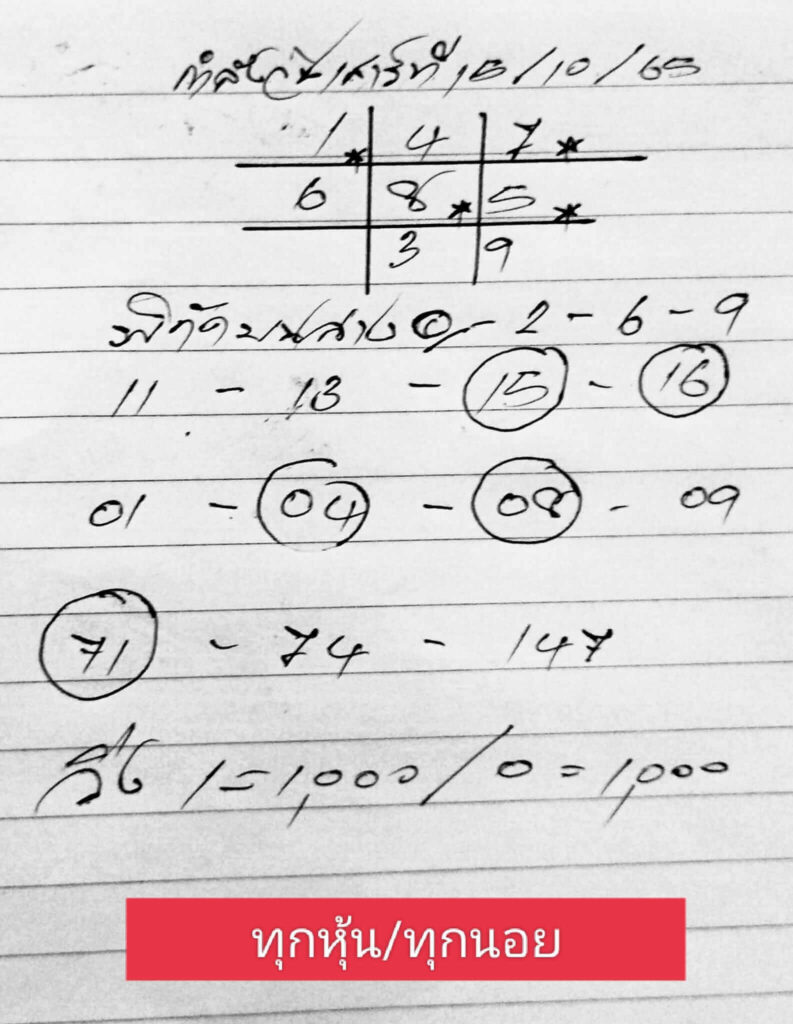 กำลังวันเสาร์ที่ 15/10/65
1 4 7
6 8 5
3 9
พิกัดบนล่าง 0 - 2 - 6 - 9
11 - 13 - 15 - 16
01 - 04 - 08 - 09
71 - 74 - 147
วิ่ง 1 = 1,000 / 0 = 1,000
ทุกหุ้น/ทุกนอย